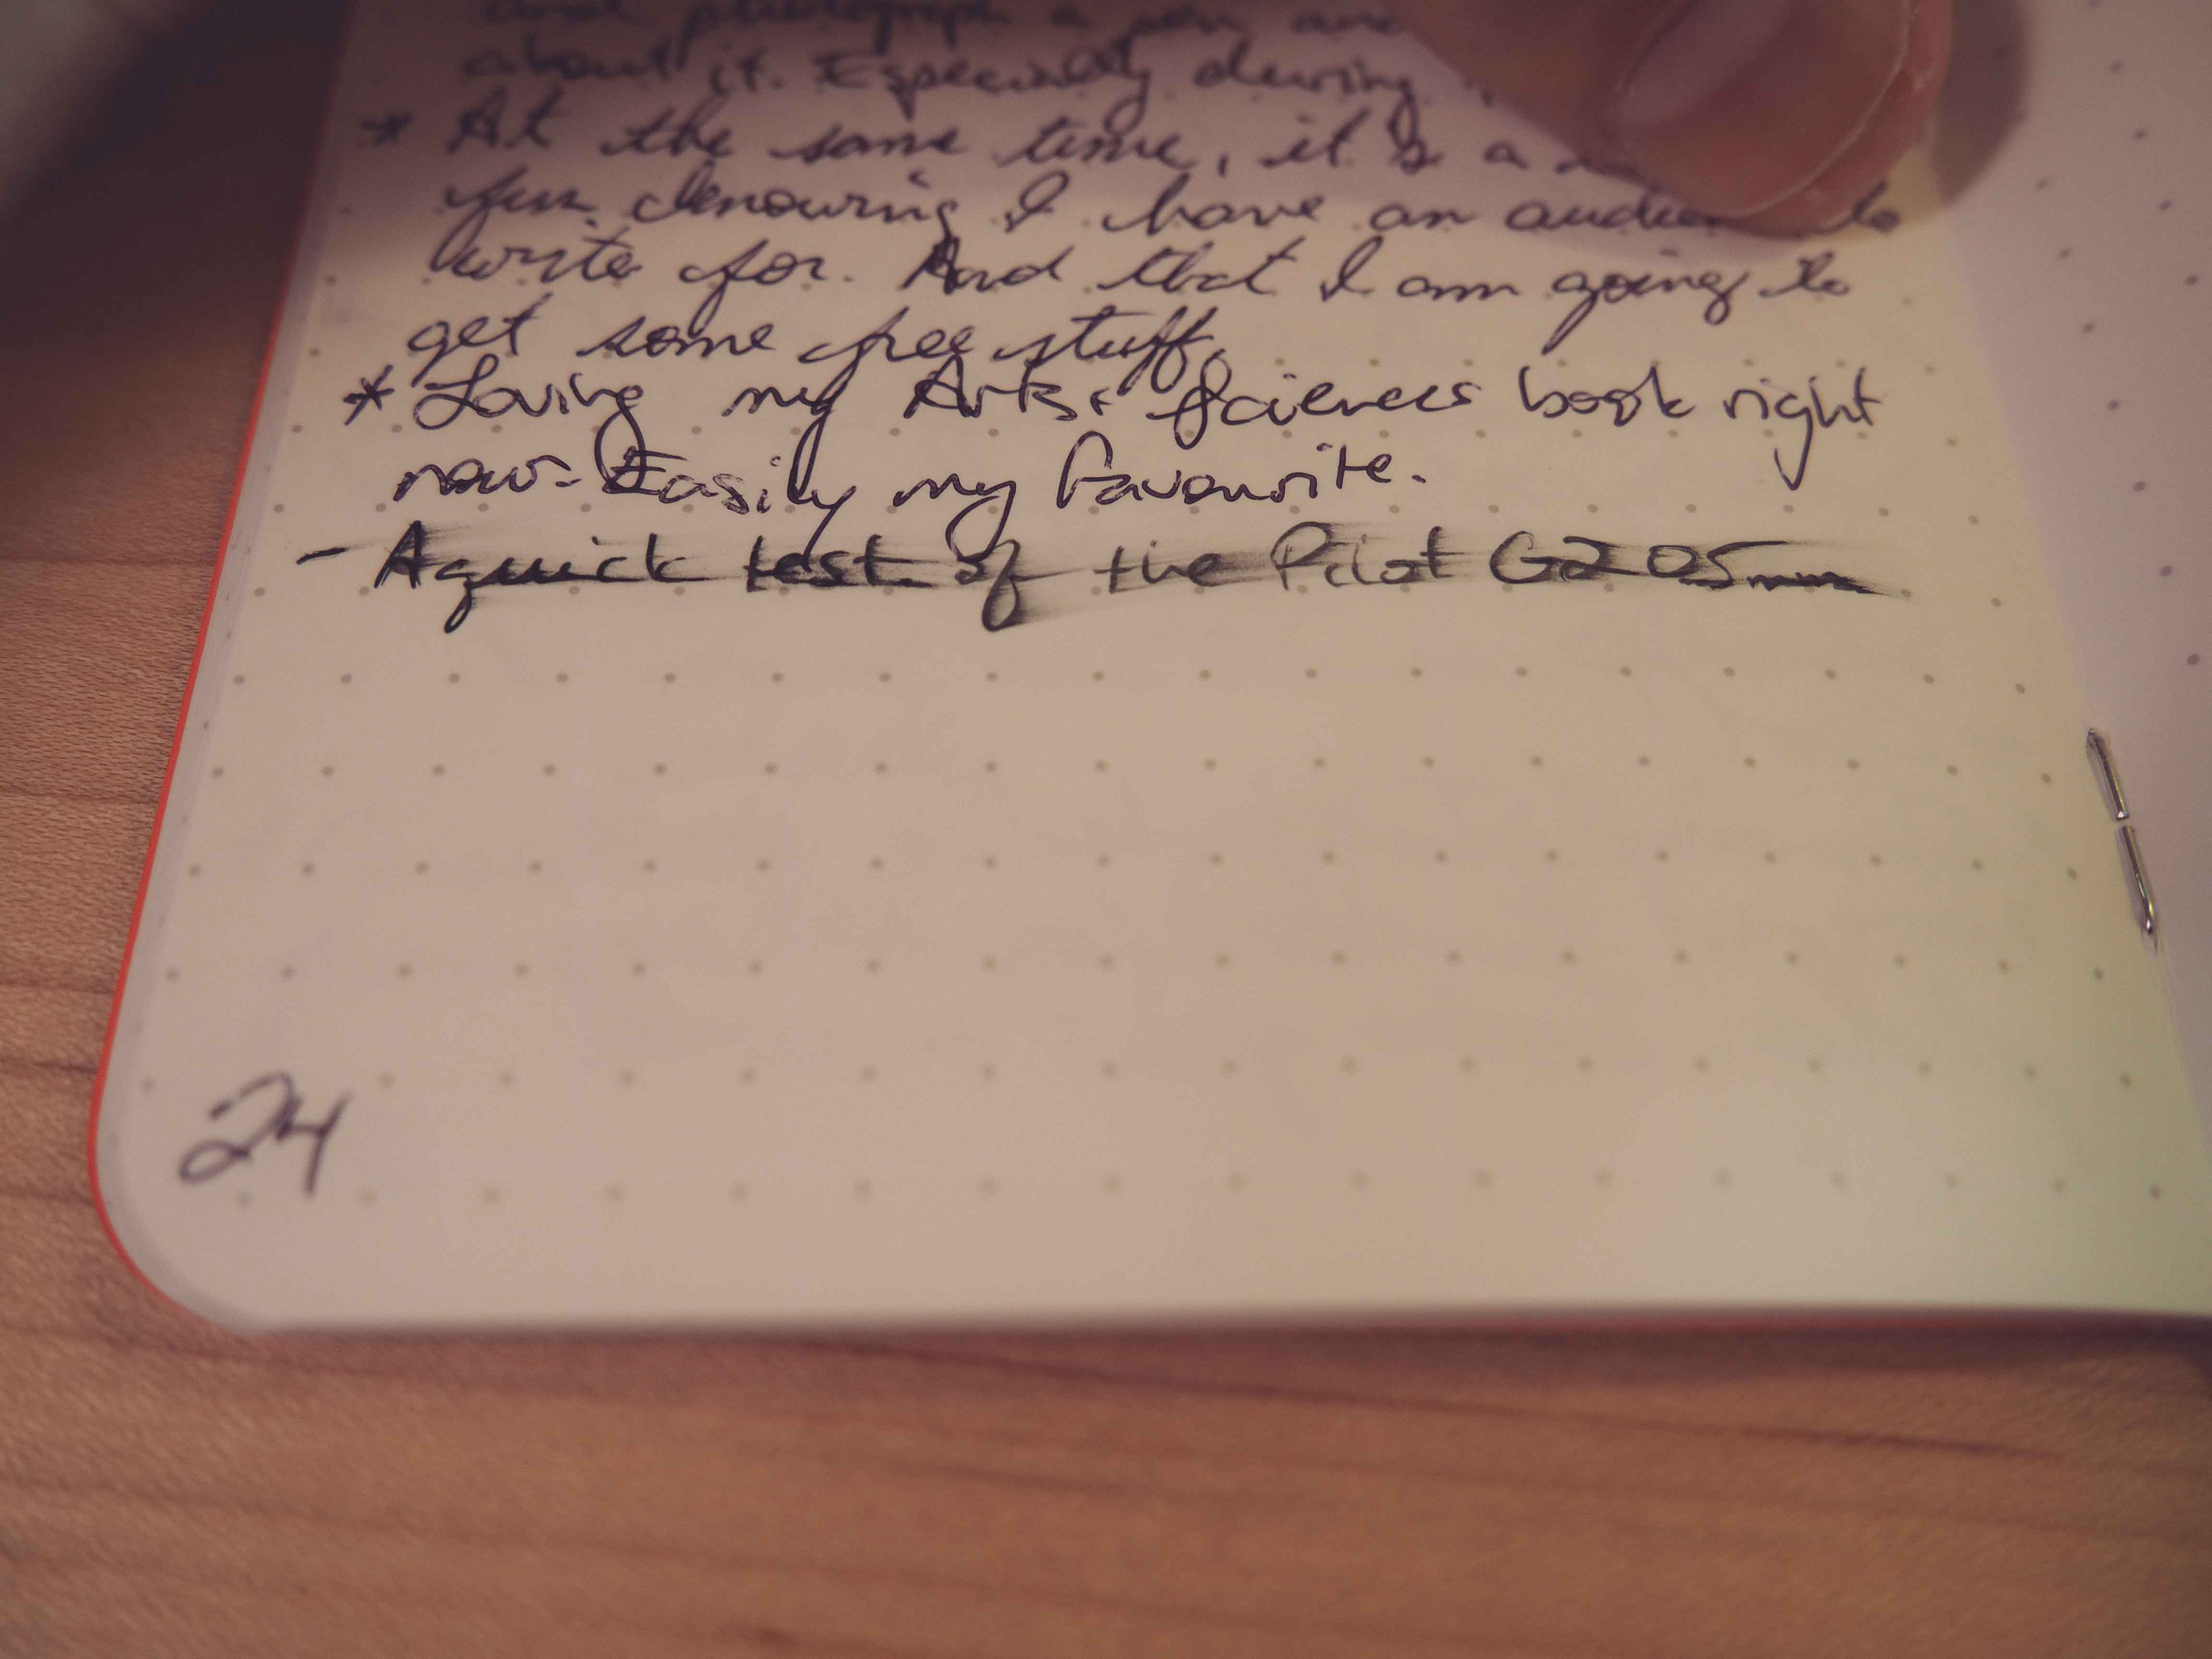 and photograph a pen and
about it. Especially during
* At the same time, it's a
fun knowing I have an to
write for. And that I am going to
get some free stuff.
* Loving my Arts & Sciences book right
now. Easily my favourite.
- A quick test of the Pilot G2 05mm
24